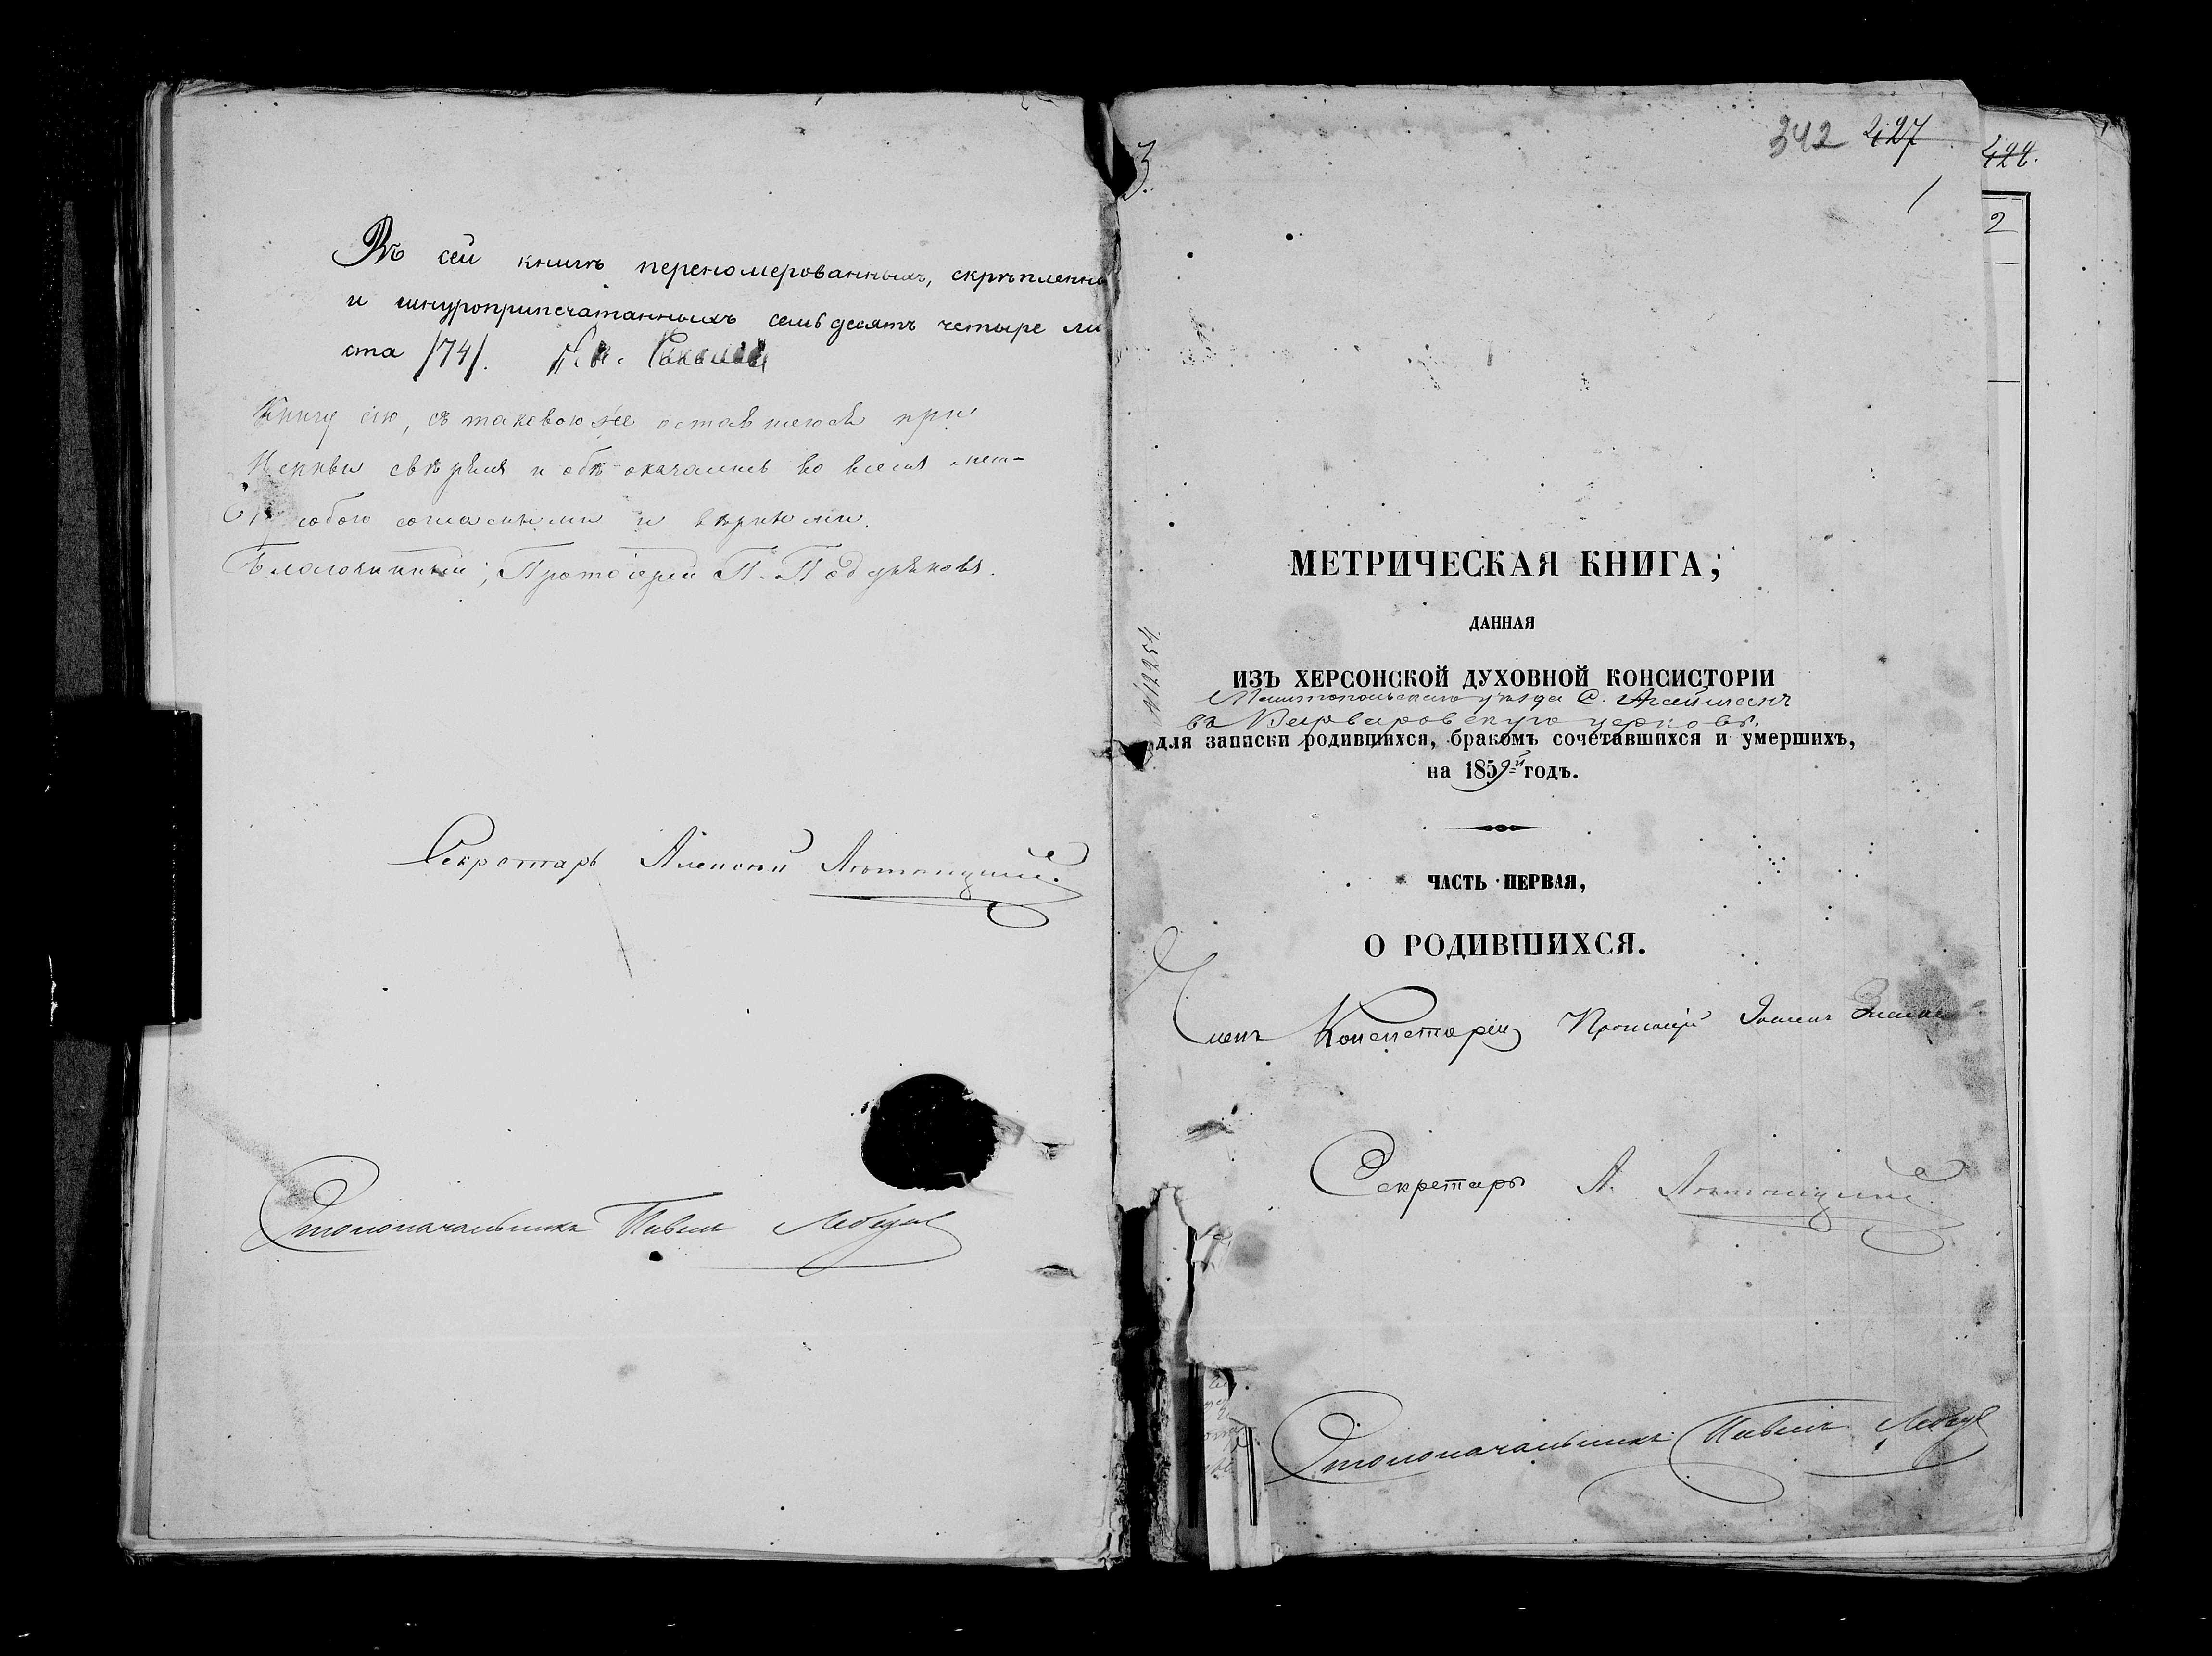 Въ сей книгѣ переномерованныхъ, скрѣпленны
и шнуроприпечатанныхъ семьдесятъ четыре ли
ста /74/.
Книгу сію, съ таковою же оставшеюся при
Церкви свѣрялъ и обѣ оказались во всемъ меж-
ду собою согласными и вѣрными.
Благочинный; Протоіерей П.
Секретарь Алексѣй
Столоначальникъ Павелъ Лебедевъ
342 427
428.
1
2
№12254
МЕТРИЧЕСКАЯ КНИГА,
ДАННАЯ
ИЗЪ ХЕРСОНСКОЙ ДУХОВНОЙ КОНСИСТОРІИ
Мелитопольскаго уѣзда С. Агайманъ
въ Варваровскую церковь.
для записки родившихся, бракомъ сочетавшихся и умершихъ,
на 1859й годъ.
ЧАСТЬ ПЕРВАЯ,
О РОДИВШИХСЯ.
Членъ Консисторіи Протоіерей Іоаннъ
Секретарь А.
Столоначальникъ Павелъ Лебедевъ